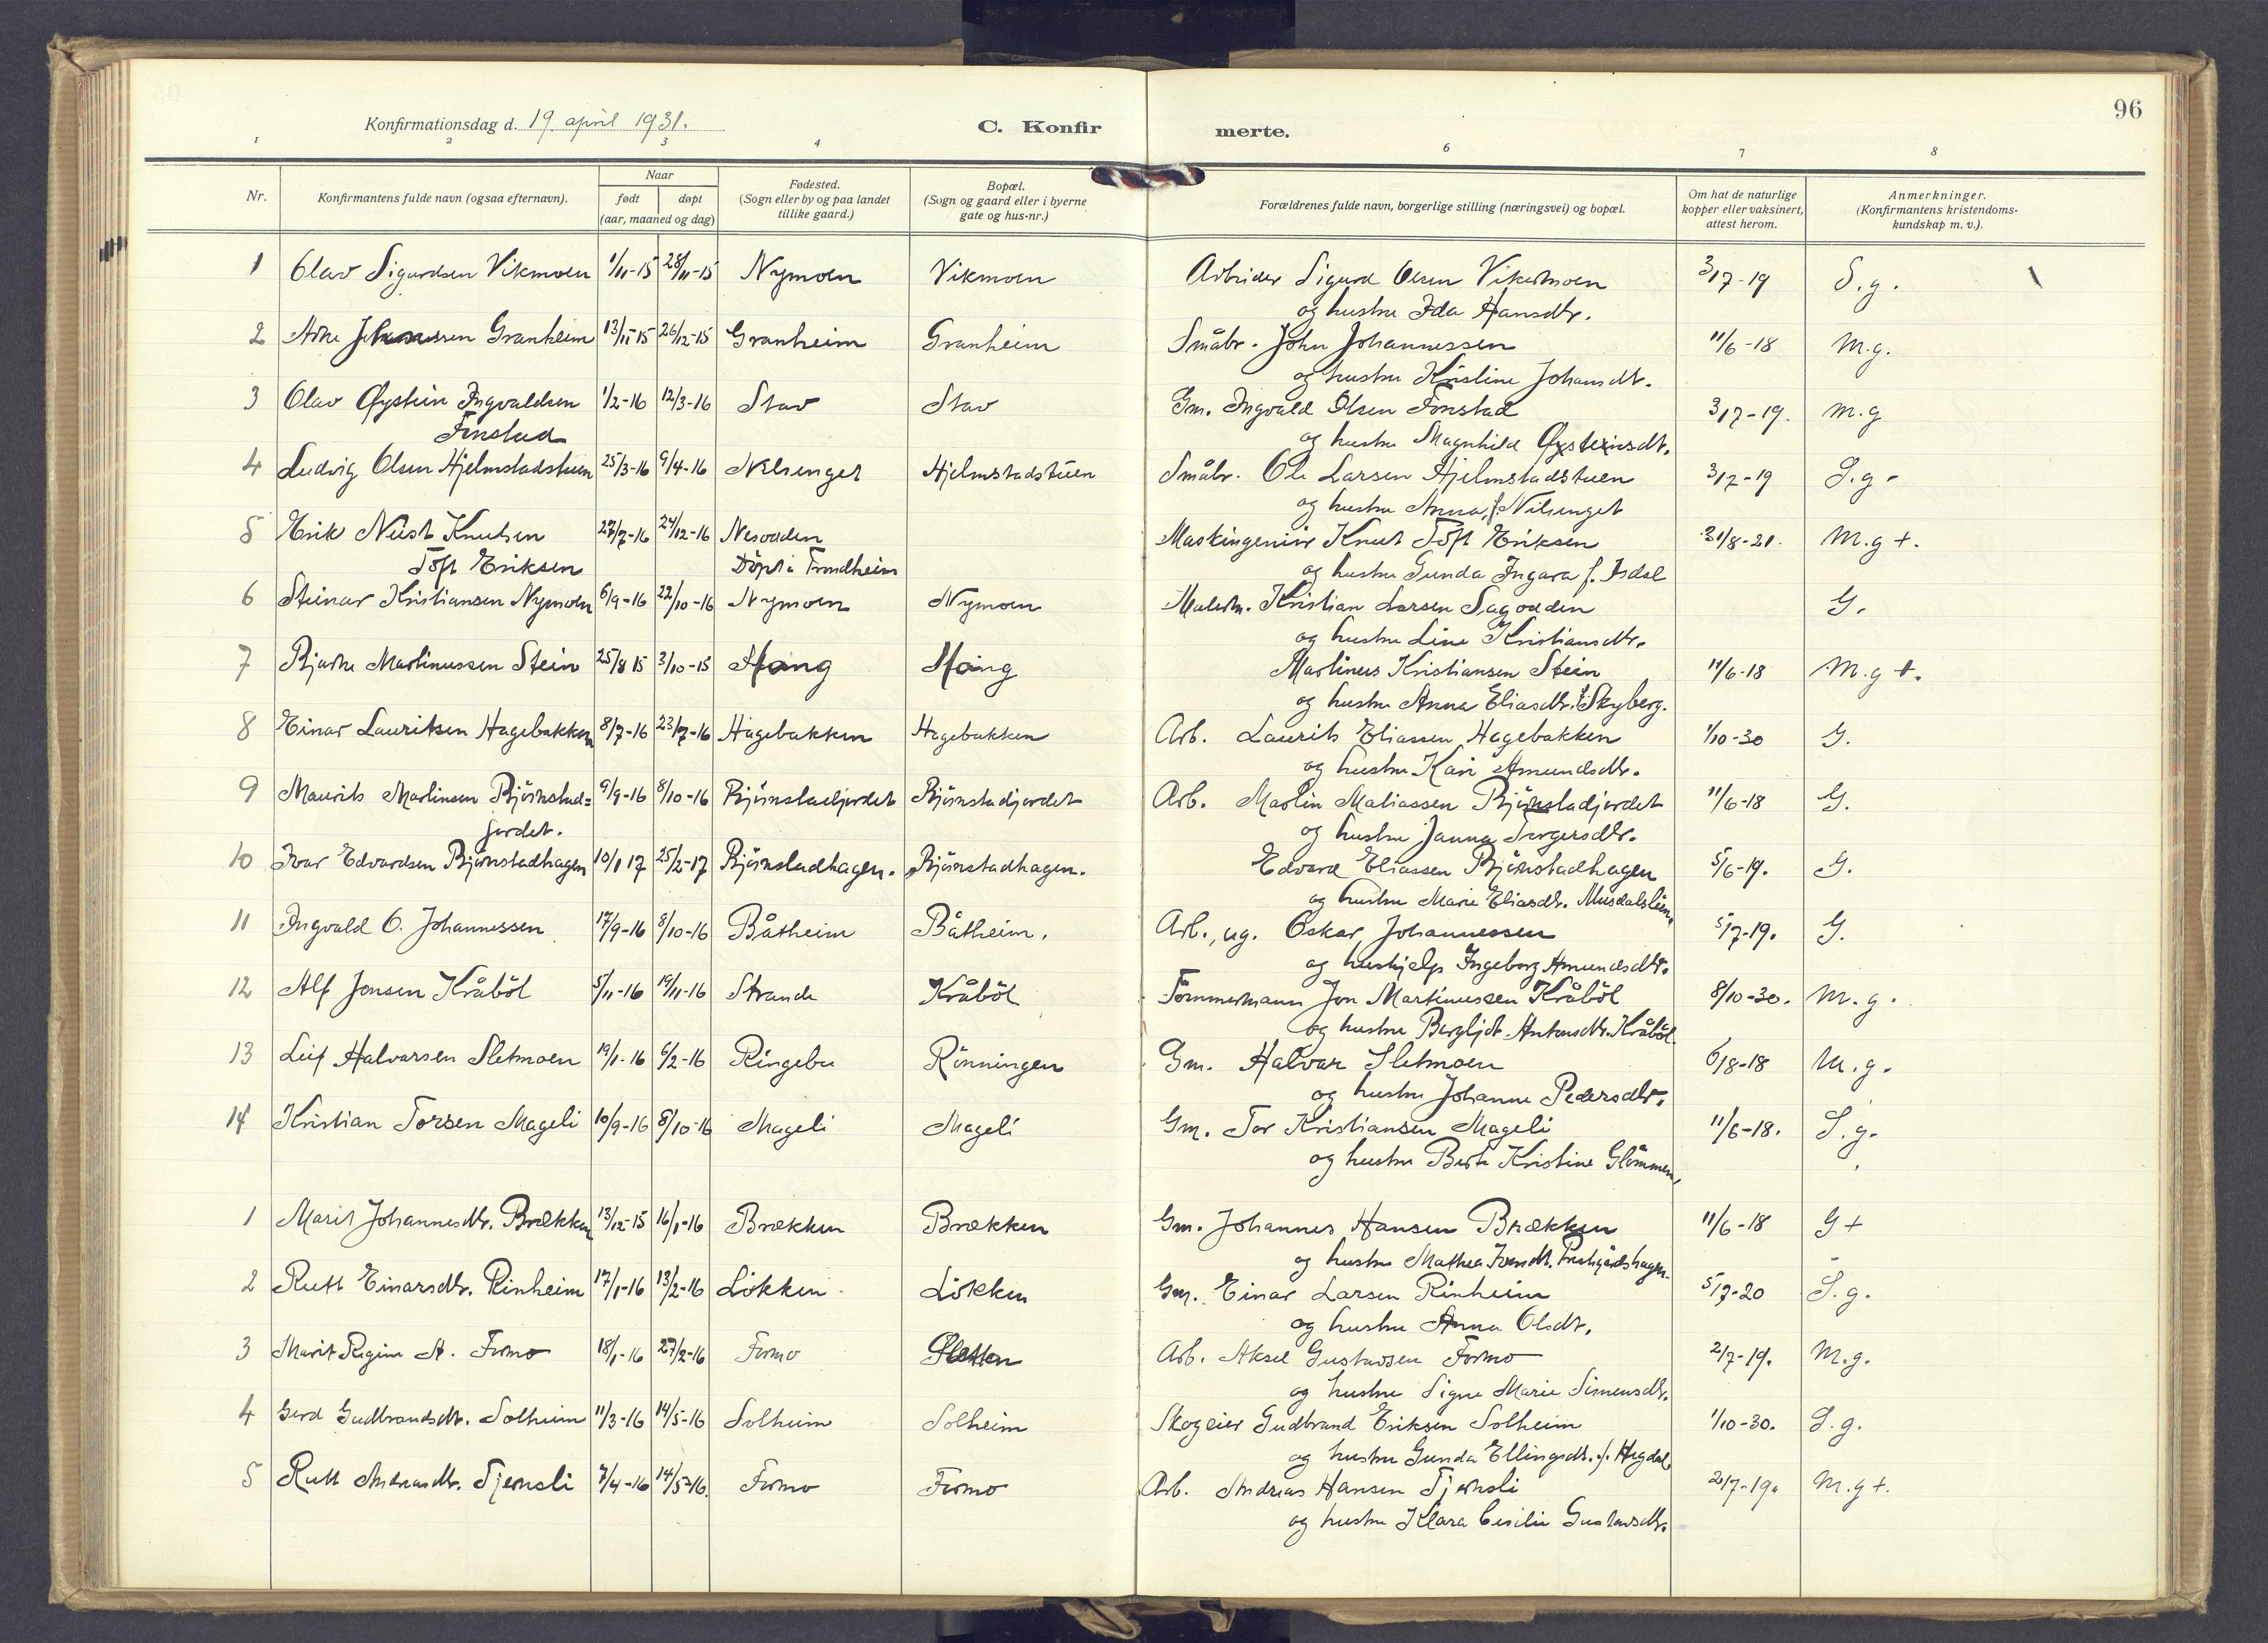 96
Konfirmationsdag d. 19 april 1931.
C. Konfir merte.
1 2 3 4 6 7 8
Nr. Konfirmantens fulde navn (ogsaa efternavn). Naar født døpt (aar, maaned og dag) Fødested. (Sogn eller by og paa landet tillike gaard.) Bopæl. (Sogn og gaard eller i byerne gate og hus-nr.) Forældrenes fulde navn, borgerlige stilling (næringsvei) og bopæl. Om hat de naturlige kopper eller vaksinert, attest herom. Anmerkninger. (Konfirmantens kristendoms- kundskap m. v.).
1 Olav Sigurdsen Vikmoen 1/11-15 28/11-15 Nymoen Vikmoen Arbeider Sigurd Olsen Vikermoen 3/7-19 S.g.
og hustru Ida Hansdtr.
2 Arne Johannessen Granheim 13/11-15 26/12-15 Granheim Granheim Småbr. John Johannessen 11/6-18 M.g.
og hustru Kristine Johansdt.
3 Olav Øystein Ingvaldsen 1/2-16 12/3-16 Stav Stav Gm. Ingvald Olsen Fonstad 3/7-19. M.g
Fonstad og hustru Magnhild Øysteinsdt.
4 Ludvig Olsen Hjelmstadstuen 25/3-16 9/4-16 Nilsenget Hjelmstadstuen Småbr. Ole Larsen Hjelmstadstuen 3/7-19 S.g-
og hustru Anna, f. Nilsenget
5 Erik Nüst Knutsen 27/7-16 24/12-16 Nesodden Maskingeniør Knut Toft Eriksen 31/8-21. M.g+.
Toft Eriksen Döpt i Trondheim og hustru Gunda Ingara f. Isdal
6 Steinar Kristiansen Nymoen 6/9-16 22/10-16 Nymoen Nymoen Malerm. Kristian Larsen Sagodden G.
og hustru Line Kristiansdtr.
7 Bjarne Martinussen Stein 25/8 15 3/10-15 Hang Hang Martinus Kristiansen Stein 11/6-18 M.g+.
og hustru Anna Eliasdtr. f. Skyberg.
8 Einar Lauritsen Hagebakken 8/7-16 23/7-16 Hagebakken Hagebakken Arb. Laurits Eliassen Hagebakken 1/10-30 G.
og hustru Kari Amundsdtr.
9 Maurits Martinsen Björnstad= 9/9-16 8/10-16 Björnstadjordet Björnstadjordet Arb. Martin Matiassen Björnstadjordet 11/6-18 G.
jordet. og hustru Janna
10 Ivar Edvardsen Björnstadhagen 10/1 17 25/2-17 Björnstadhagen. Björnstadhagen. Edvard Eliassen Björnstadhagen 5/6-19. G.
og hustru Marie Eliasdtr. Musdalslien
11 Ingvald O. Johannessen 17/9-16 8/10-16 Båtheim Båtheim. Arb., ug. Oskar Johannessen 5/7-19. G.
og hushjelp Ingeborg Amundsdtr.
12 Alf Jonsen Kråböl 5/11-16 19/11-16 Strande Kråböl Tömmermann Jon Martinussen Kråböl 8/10-30. M.g.
og hustru Bergljot Antonsdtr. Kråböl
13 Leif Halvarsen Sletmoen 19/1-16 6/2-16 Ringebu Rönningen Gm. Halvar Sletmoen 6/8-18 M.g.
og hustru Johanne Pedersdtr.
14 Kristian Torsen Mageli 10/9-16 8/10-16 Mageli Mageli Gm. Tor Kristiansen Mageli 11/6-18. S.g.
og hustru Berte Kristine Glömmen
1 Marit Johannesdtr. Brækken 13/12-15 16/1-16 Brækken Brækken Gm. Johannes Hansen Brækken 11/6-18 G+
og hustru Mathea
2 Rutt Einarsdtr. Rinheim 17/1-16 13/2-16 Lökken Lökken Gm. Einar Larsen Rinheim 5/7-20 S.g.
og hustru Anna Olsdt.
3 Marit Regine A. Formo 18/1-16 27/2-16 Formo Sletten Arb. Aksel Gustavsen Formo 2/7-19. M.g.
og hustru Signe Marie Simensdtr.
4 Gerd Gudbrandsdtr. Solheim 11/3-16 14/5-16 Solheim Solheim Skogeier Gudbrand Eriksen Solheim 1/10-30. S.g.
og hustru Gunda Ellingsdtr. f. Hegdal
5 Rutt Andreasdtr. Tjernsli 7/4-16 14/5-16. Formo Formo Arb. Andreas Hansen Tjernsli 2/7-19. M.g+.
og hustru Klara Cecilie Gustavsdtr.